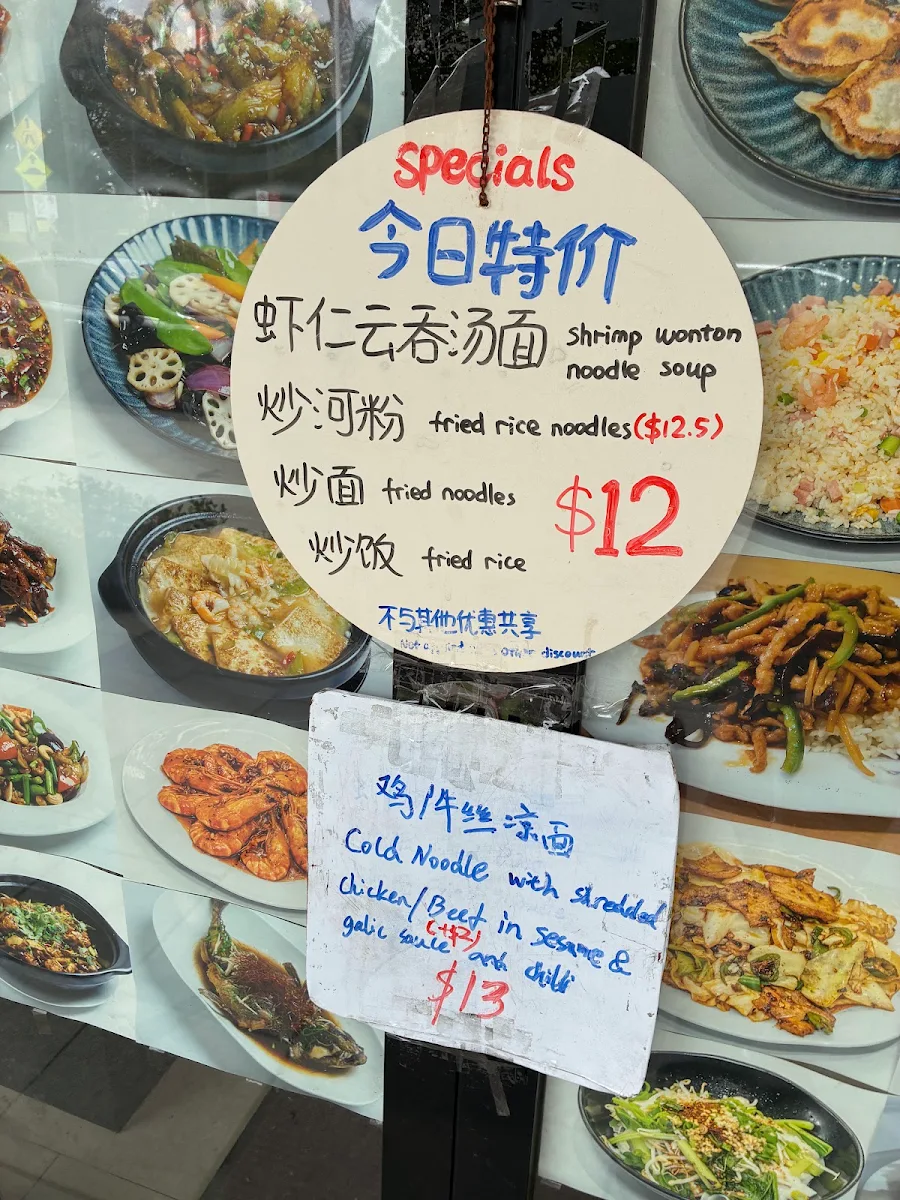 specials
今日特价
虾仁云吞汤面 shrimp wonton
noodle soup
炒河粉 fried rice noodles($12.5)
炒面 fried noodles
$12
炒饭 fried rice
不与其他优惠共享
other discount
鸡/牛丝凉面
Cold Noodle with shredded
chicken/Beef in sesame &
(+$2)
galic sauce and chilli
$13